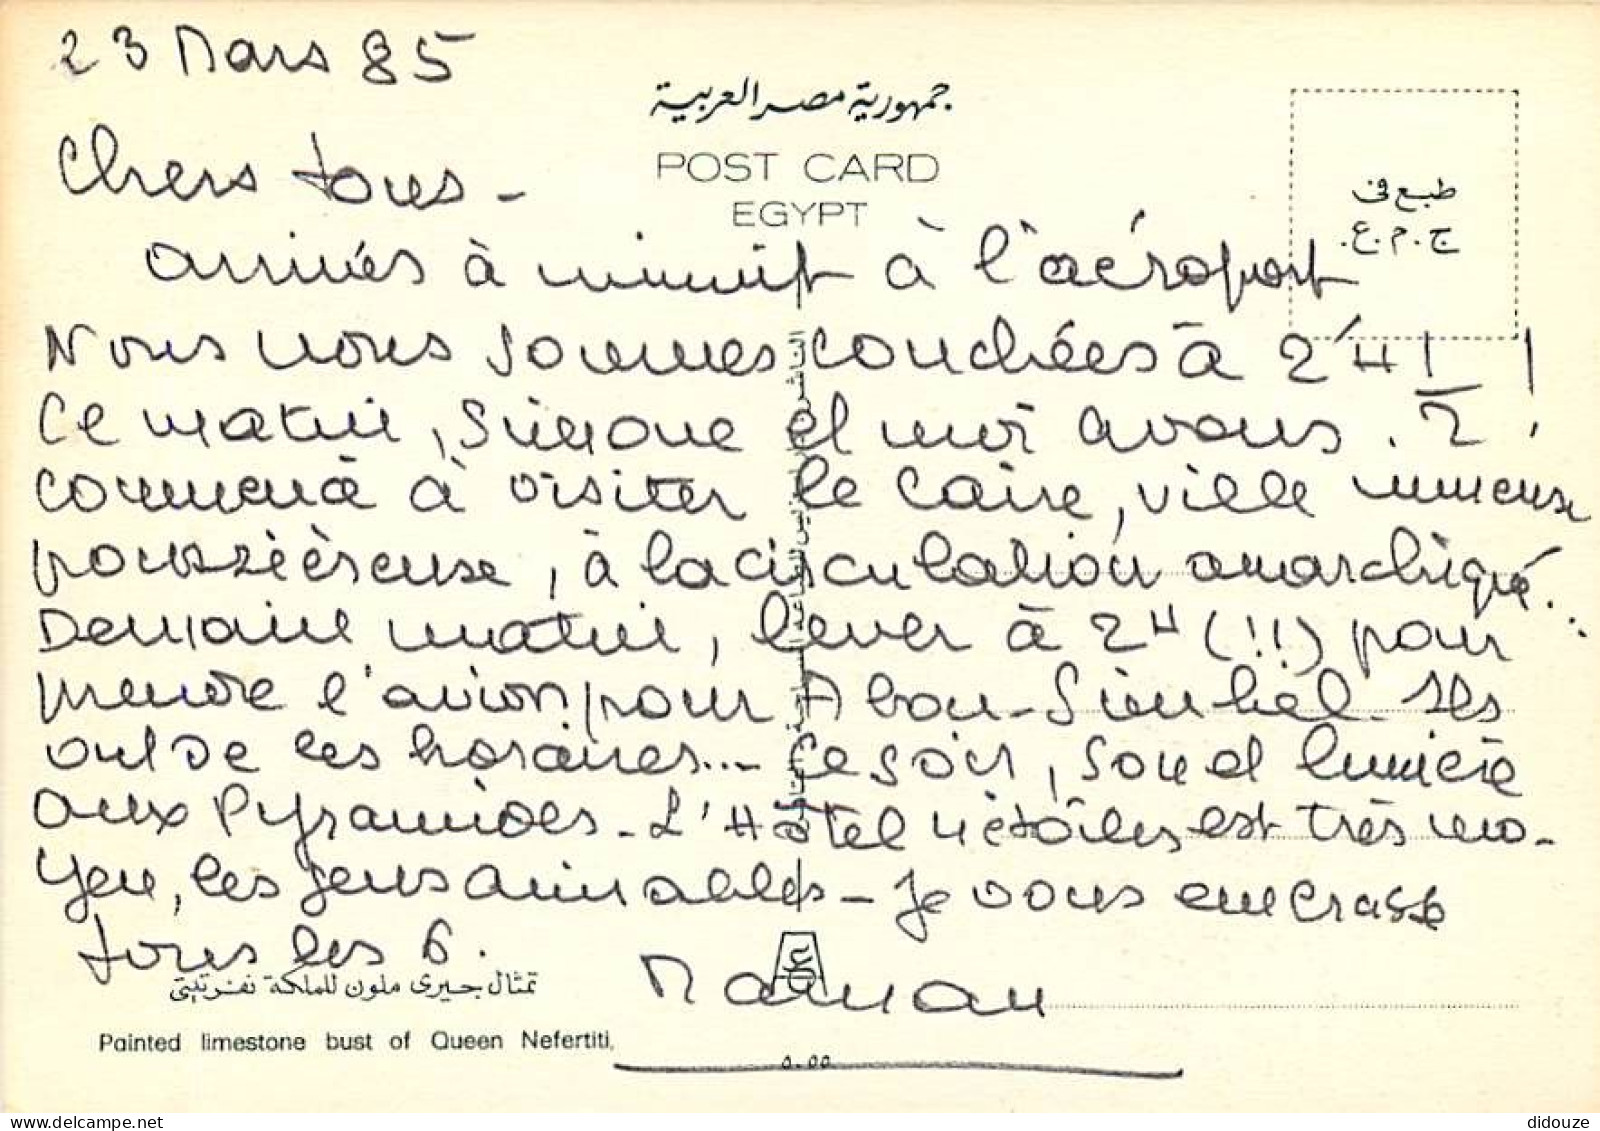 23 Mars 85
جمهورية مصر العربية
POST CARD
EGYPT
طبع في
ج.م.ع.
Chers tous -
arrivées à minuit à l'aéroport
Nous nous sommes couchées à 2H 1/2 !
Ce matin, Simone et moi avons
commencé à visiter le Caire, ville immense
poussiéreuse, à la circulation anarchique...
Demain matin, lever à 2H (!!) pour
prendre l'avion pour Abou-Simbel. Ils
ont de ces horaires... Ce soir, son et lumière
aux Pyramides - L'Hôtel 4 étoiles est très mo-
yen, les gens aimables - Je vous embrasse
tous les 6.
Maman
تمثال جيرى ملون للملكة نفرتيتى
Painted limestone bust of Queen Nefertiti.
delcampe.net
didouze